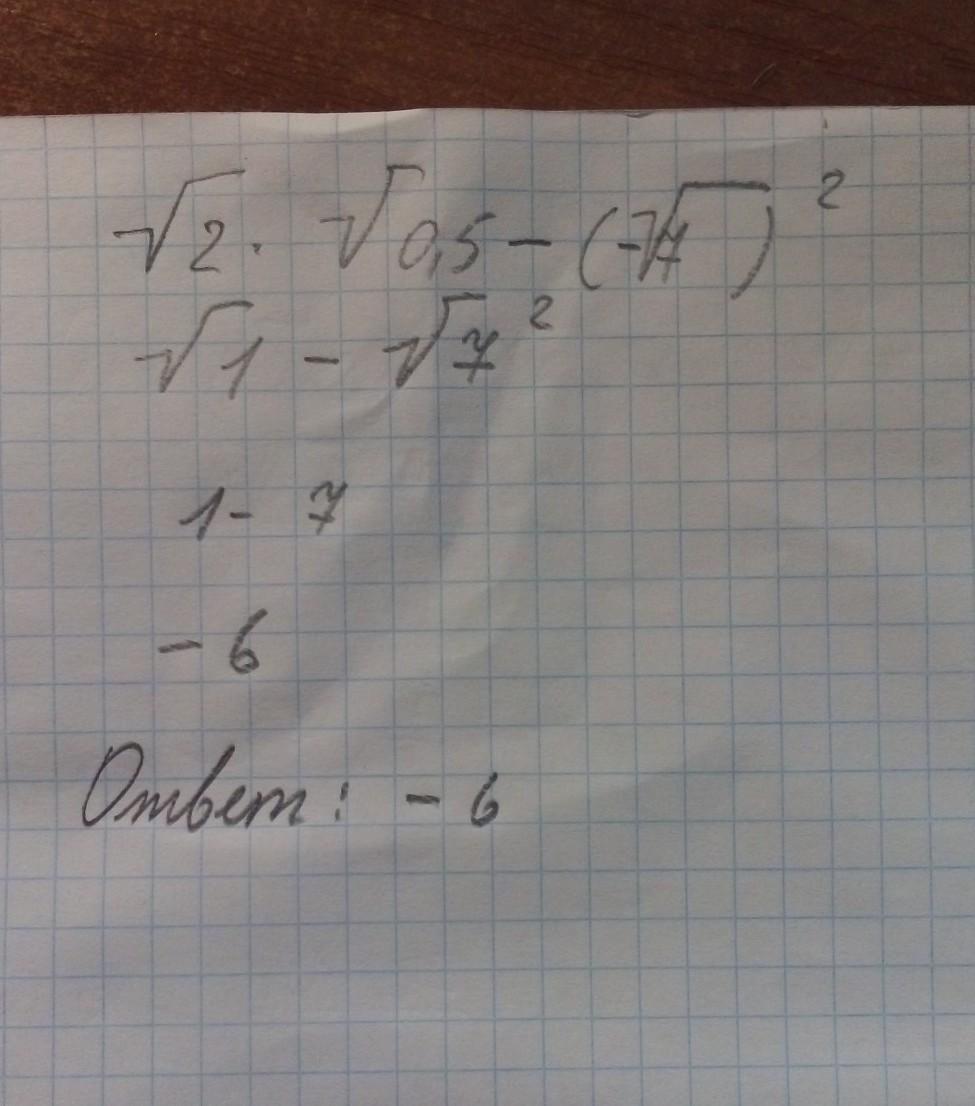 √2 · √0,5 - (-√7)²
√1 - √7²
1 - 7
- 6
Ответ: - 6